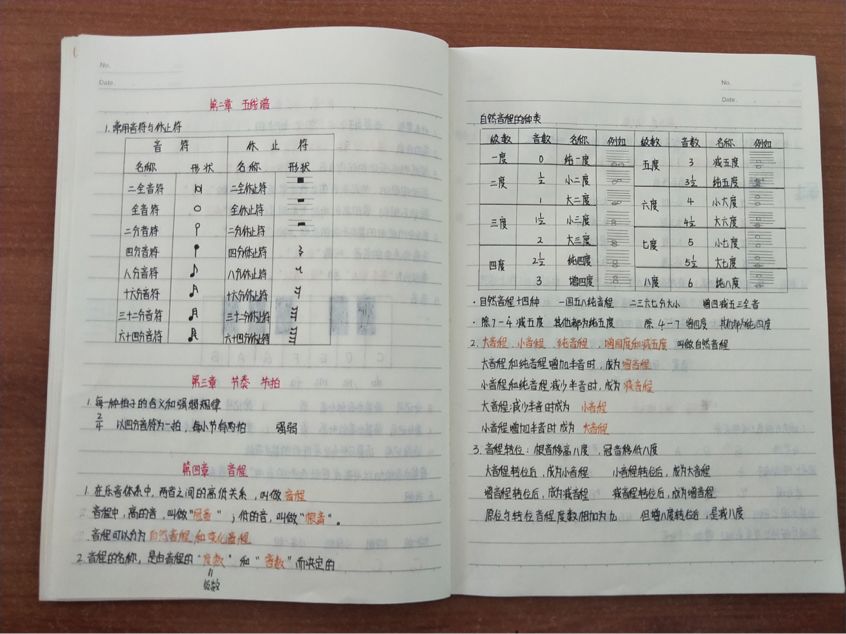 No.
Date.
第二章 五线谱
1.常用音符与休止符
音 符 休 止 符
名称 形状 名称 形状
二全音符 二全休止符
全音符 全休止符
二分音符 二分休止符
四分音符 四分休止符
八分音符 八分休止符
十六分音符 十六分休止符
三十二分音符 三十二分休止符
六十四分音符 六十四分休止符
第三章 节奏 节拍
1.每一种拍子的含义和强弱规律
2/4 以四分音符为一拍,每小节有两拍 强弱
第四章 音程
1.在乐音体系中,两音之间的高低关系,叫做音程
音程中,高的音,叫做"冠音";低的音,叫做"根音"。
音程可以分为自然音程和变化音程
2.音程的名称,是由音程的"度数"和"音数"而决定的
级数
No.
Date.
自然音程的种类
级数 音数 名称 例如 级数 音数 名称 例如
一度 0 纯一度 五度 3 减五度
二度 1/2 小二度 3 1/2 纯五度
1 大二度 六度 4 小六度
三度 1 1/2 小三度 4 1/2 大六度
2 大三度 七度 5 小七度
四度 2 1/2 纯四度 5 1/2 大七度
3 增四度 八度 6 纯八度
·自然音程十四种 一四五八纯音程 二三六七分大小 增四减五三全音
·除7-4减五度 其他都为纯五度 除4-7增四度 其他都为纯四度
2.大音程、小音程、纯音程、增四度和减五度 叫做自然音程
大音程和纯音程增加半音时,成为增音程
小音程和纯音程减少半音时,成为减音程
大音程减少半音时成为 小音程
小音程增加半音时成为 大音程
3.音程转位:根音移高八度 冠音移低八度
大音程转位后,成为小音程 小音程转位后,成为大音程
增音程转位后,成为减音程 减音程转位后,成为增音程
原位与转位音程度数相加为九 但增八度转位后,是减八度